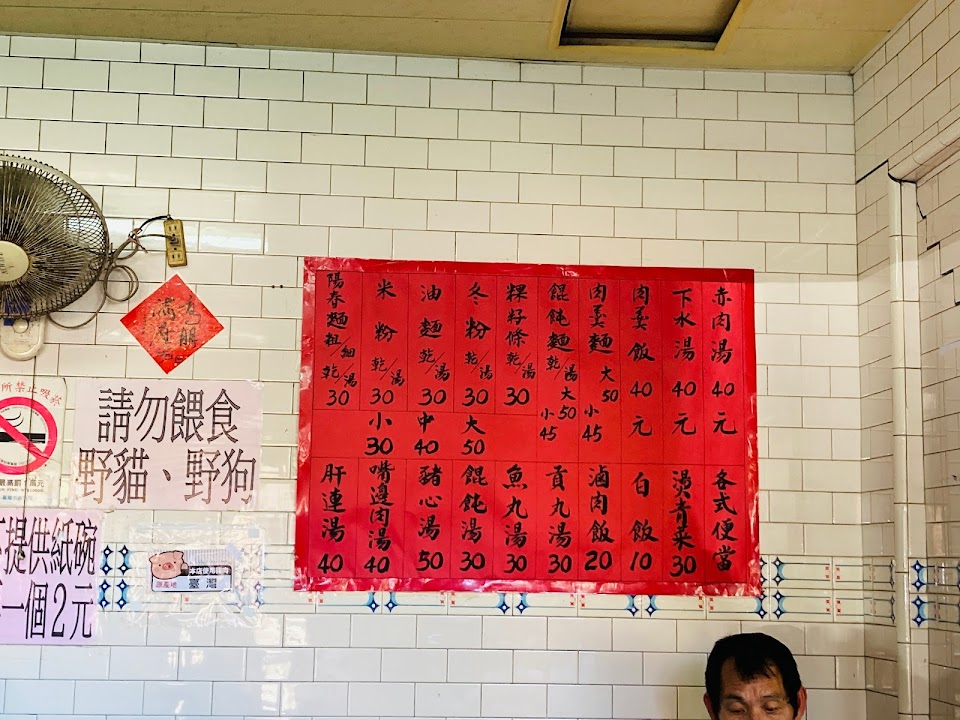 赤肉湯 40元
下水湯 40元
肉羹飯 40元
肉羹麵 大50 小45
餛飩麵 乾/湯 大50 小45
粿仔條 乾/湯 30
冬粉 乾/湯 30
油麵 乾/湯 30
米粉 乾/湯 30
陽春麵 粗/細 乾/湯 30
小30 中40 大50
各式便當
燙青菜 30
白飯 10
滷肉飯 20
貢丸湯 30
魚丸湯 30
餛飩湯 30
豬心湯 50
嘴邊肉湯 40
肝連湯 40
請勿餵食
野貓、野狗
提供紙碗
一個2元
所禁止吸菸
本店使用豬肉
原產地
臺灣